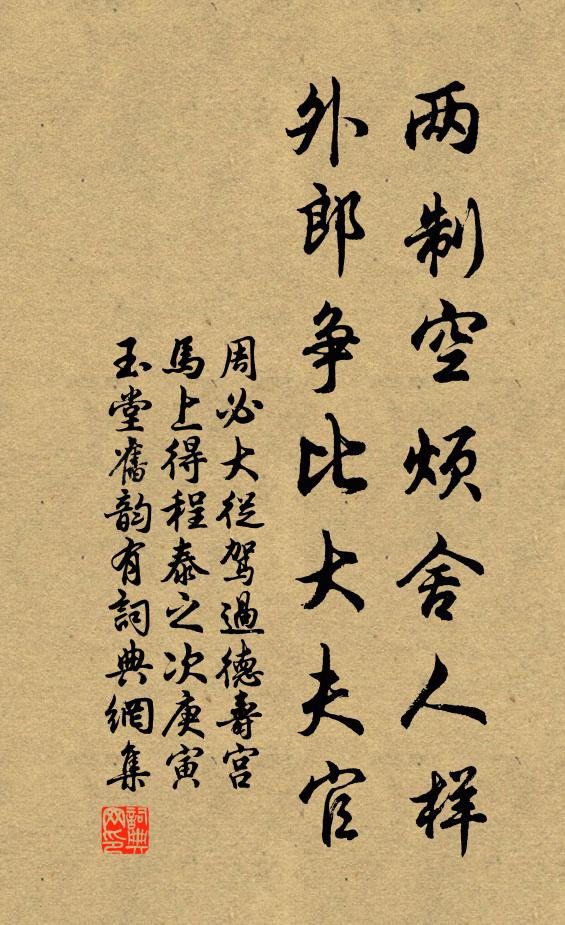 两制空烦舍人样
外郎争比大夫官
周必大從駕過德壽宮
馬上得程泰之次庚寅
玉堂舊韵有詞典網集
詞典网印